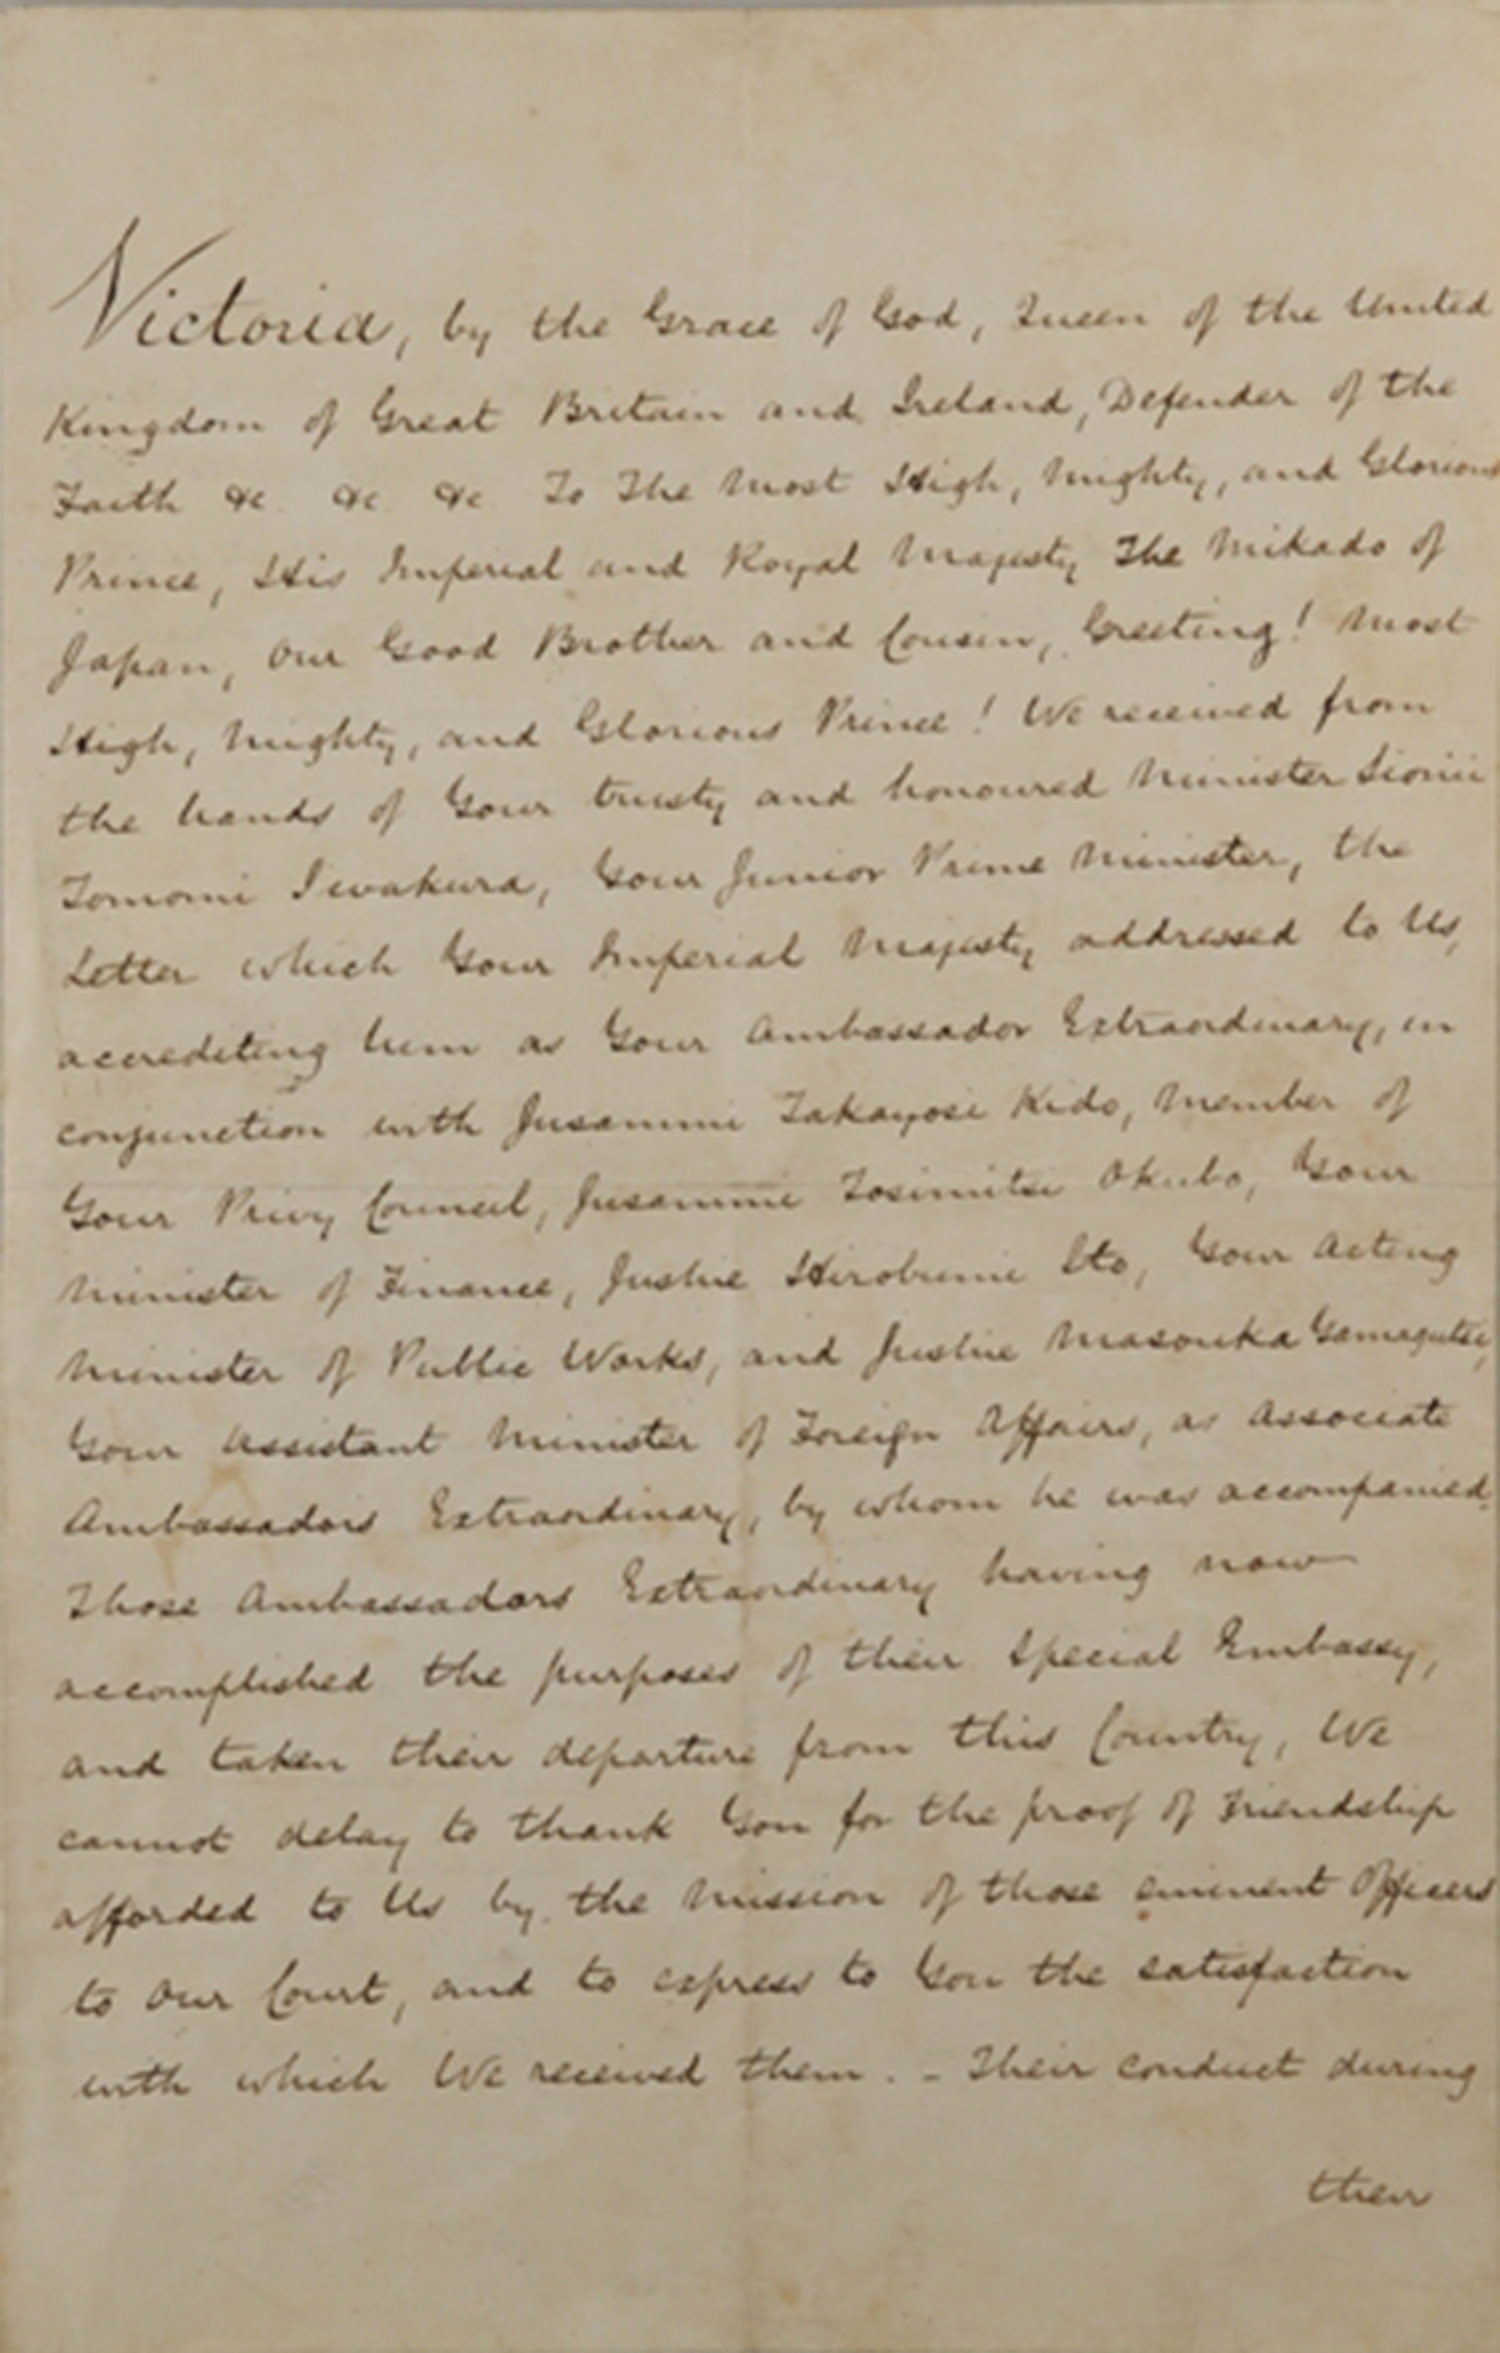 Victoria, by the Grace of God, Queen of the United
Kingdom of Great Britain and Ireland, Defender of the
Faith &c. &c. &c. To The Most High, Mighty, and Glorious
Prince, His Imperial and Royal Majesty The Mikado of
Japan, Our Good Brother and Cousin, Greeting! Most
High, Mighty, and Glorious Prince! We received from
the hands of Your trusty and honoured Minister Sionii
Tomomi Iwakura, Your Junior Prime Minister, the
Letter which Your Imperial Majesty addressed to Us,
accrediting him as Your Ambassador Extraordinary, in
conjunction with Jusammi Takayosi Kido, Member of
Your Privy Council, Jusammie Tosimitsi Okubo, Your
Minister of Finance, Jushie Hirobumi Ito, Your Acting
Minister of Public Works, and Jushie Masouka Yamagutsi,
Your Assistant Minister of Foreign Affairs, as Associate
Ambassadors Extraordinary, by whom he was accompanied.
Those Ambassadors Extraordinary having now
accomplished the purposes of their Special Embassy,
and taken their departure from this Country, We
cannot delay to thank You for the proof of Friendship
afforded to Us by the Mission of those eminent Officers
to Our Court, and to express to You the satisfaction
with which We received them. - Their conduct during
their